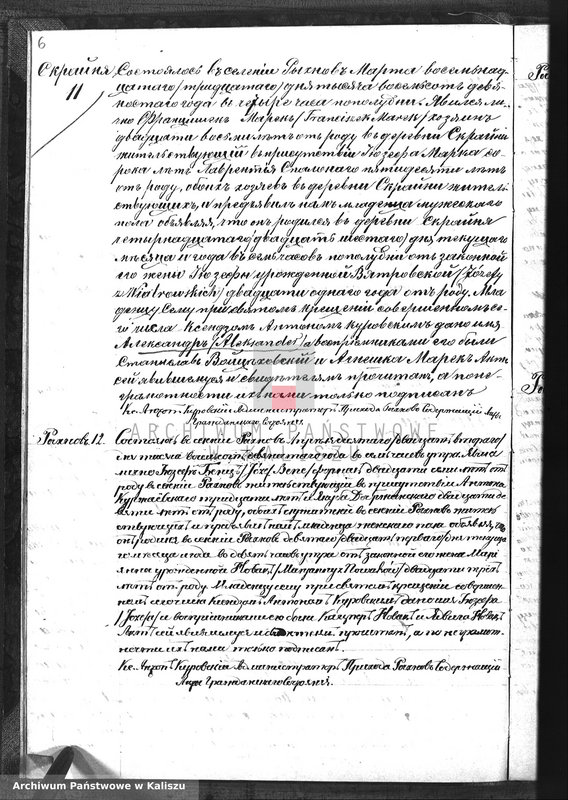 6
Скрайня Состоялось въ селеніи Рыхновъ Марта восемьнад-
11 цатаго /тридцатаго/ дня тысяча восемьсотъ девя-
ностаго года въ четыре часа пополудни. Явился ли-
чно Францишекъ Марекъ /Franciszek Marek/ хозяинъ
двадцати восьми лѣтъ отъ роду въ деревни Скрайни
жительствующій въ присутствіи Іозефа Марка со-
рока лѣтъ Лаврентія пятидесяти лѣтъ
отъ роду, обоихъ хозяевъ въ деревни Скрайни житель-
ствующихъ, и предъявилъ намъ младенца мужескаго
пола объявляя, что онъ родился въ деревни Скрайня
четырнадцатаго /двадцать шестаго/ дня текущаго
мѣсяца и года въ семь часовъ пополудни отъ законной
его жены Іозефы урожденной Вятровской /Józefy
z Wiatrowskich/ двадцати одного года отъ роду. Мла-
денцу сему при святомъ крещеніи совершенномъ се-
го числа Ксендзомъ Антономъ Куровскимъ дано имя
Александръ /Aleksander/ а воспріемниками его были
Станиславъ Войцѣховскій и Агнешка Марекъ. Актъ
сей явившемуся и свидѣтелямъ прочитанъ, а по не-
грамотности ихъ нами только подписанъ
Кс. Антонъ Куровскій Администраторъ Прихода Рыхновъ Содержащій Акты
Гражданскаго Состоянія.
Рыхновъ 12. Состоялось въ селеніи Рыхновъ Апрѣля десятаго /двадцать втораго/
дня тысяча восемьсотъ девяностаго года въ семь часовъ утра. Явил-
ся лично Іозефъ Бенцъ /Józef Benc/ форналь двадцати семи лѣтъ отъ
роду въ селеніи Рыхновъ жительствующій въ присутствіи Антона
тридцати лѣтъ и двадцати де-
вяти лѣтъ отъ роду, обоихъ въ селеніи Рыхновъ житель-
ствующихъ и предъявилъ намъ младенца женскаго пола объявляя, что
онъ родился въ селеніи Рыхновъ девятаго /двадцать перваго/ дня текуща-
го мѣсяца и года въ девять часовъ утра отъ законной его жены Марі-
янны урожденной Новакъ /Maryanny z Nowaków/ двадцати трехъ
лѣтъ отъ роду. Младенцу сему при святомъ крещеніи совершен-
номъ сего числа Ксендзомъ Антономъ Куровскимъ дано имя Іозефа
/Józefa/ а воспріемниками его были Каспаръ Новакъ и Новакъ.
Актъ сей явившемуся и свидѣтелямъ прочитанъ, а по неграмот-
ности ихъ нами только подписанъ.
Кс. Антонъ Куровскій Администраторъ Прихода Рыхновъ Содержащій
Акты Гражданскаго Состоянія.
ARCHIWUM PAŃSTWOWE
W KALISZU
Archiwum Państwowe w Kaliszu